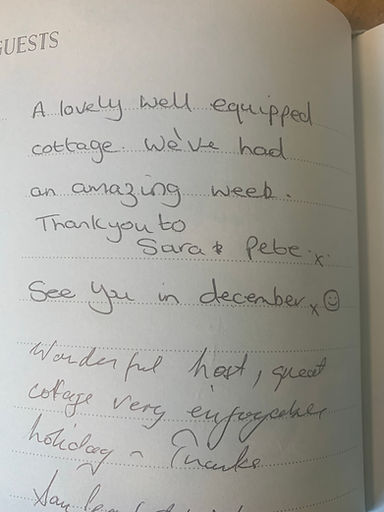 GUESTS
A lovely well equipped
cottage. We've had
an amazing week.
Thankyou to
Sara & Pete.x.
See you in december x ☺
Wonderful host, great
cottage very enjoyable
holiday - Thanks